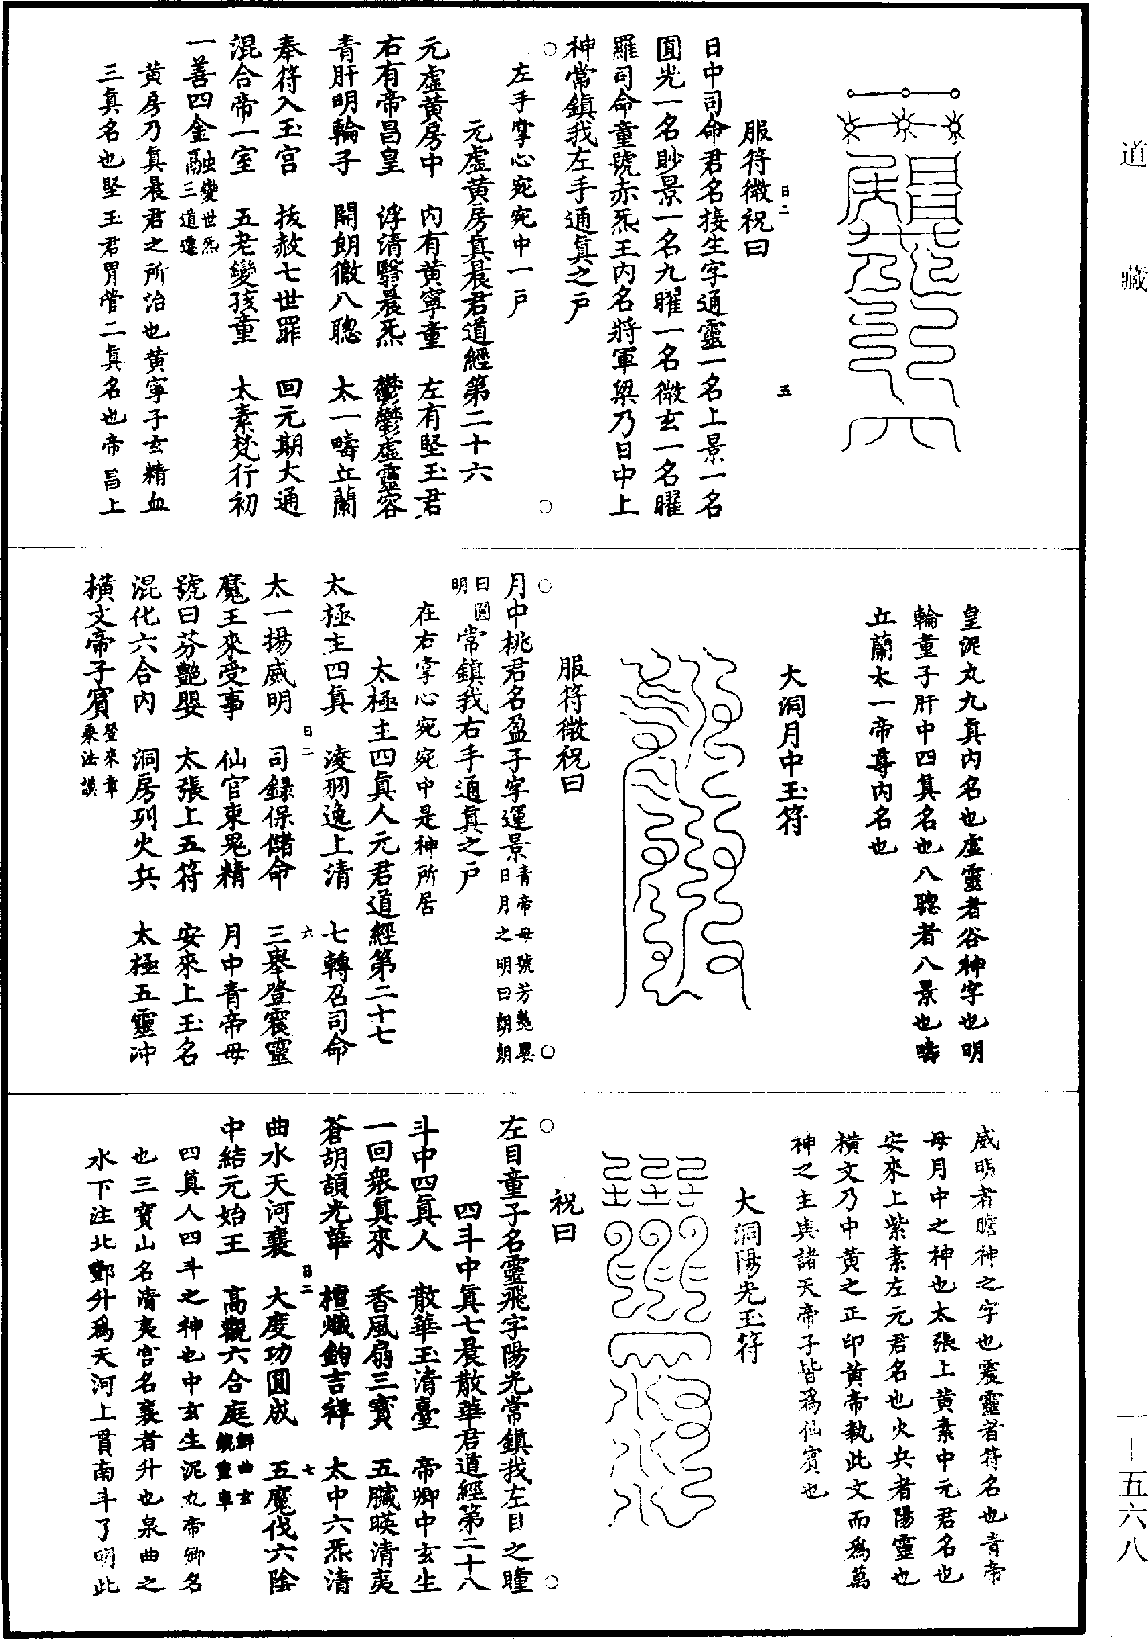 道藏
一—五六八
服符微祝曰
日中司命君名接生字通靈一名上景一名
圓光一名眇景一名九曜一名微玄一名曜
羅司命童號赤炁王內名將軍梁乃日中上
神常鎮我左手通真之戶
左手掌心宛宛中一戶
元虛黃房真晨君道經第二十六
元虛黃房中　內有黃寧童　左有堅玉君
右有帝昌皇　浮清翳晨炁　鬱鬱虛靈容
青肝明輪子　開朗徹八聰　太一疇丘蘭
奉符入玉宮　拔赦七世罪　回元期大通
混合帝一室　五老變孩童　太素梵行初
一善四金融變世炁三道遠
黃房乃真晨君之所治也黃寧子玄精血
三真名也堅玉君胃管二真名也帝昌上
皇泥丸九真內名也虛靈者谷神字也明
輪童子肝中四真名也八聰者八景也疇
丘蘭太一帝尊內名也
大洞月中玉符
服符微祝曰
月中桃君名盈子字運景青帝母號芳艷嬰日月之明曰朗朗
日圓明常鎮我右手通真之戶
在右掌心宛宛中是神所居
太極主四真人元君道經第二十七
太極主四真　淩羽逸上清　七轉召司命
太一揚威明　司錄保儲命　三舉登震靈
魔王來受事　仙官東鬼精　月中青帝母
號曰芬艷嬰　太張上五符　安來上玉名
混化六合內　洞房列火兵　太極五靈沖
橫文帝子賓
威明者膽神之字也震靈者符名也青帝
母月中之神也太張上黃素中元君名也
安來上紫素左元君名也火兵者陽靈也
橫文乃中黃之正印黃帝執此文而為萬
神之主與諸天帝子皆為仙賓也
大洞陽光玉符
祝曰
左目童子名靈飛字陽光常鎮我左目之瞳
四斗中真七晨散華君道經第二十八
斗中四真人　散華玉清臺　帝卿中玄生
一回眾真來　香風扇三寶　五臟暎清夷
蒼胡頡光華　檀熾鈞吉祥　太中六炁清
曲水天河襄　大度功圓成　五魔伐六陰
中結元始王　高觀六合庭
四真人四斗之神也中玄生泥丸帝卿名
也三寶山名清夷宮名襄者升也泉曲之
水下注北酆升為天河上貫南斗了明此